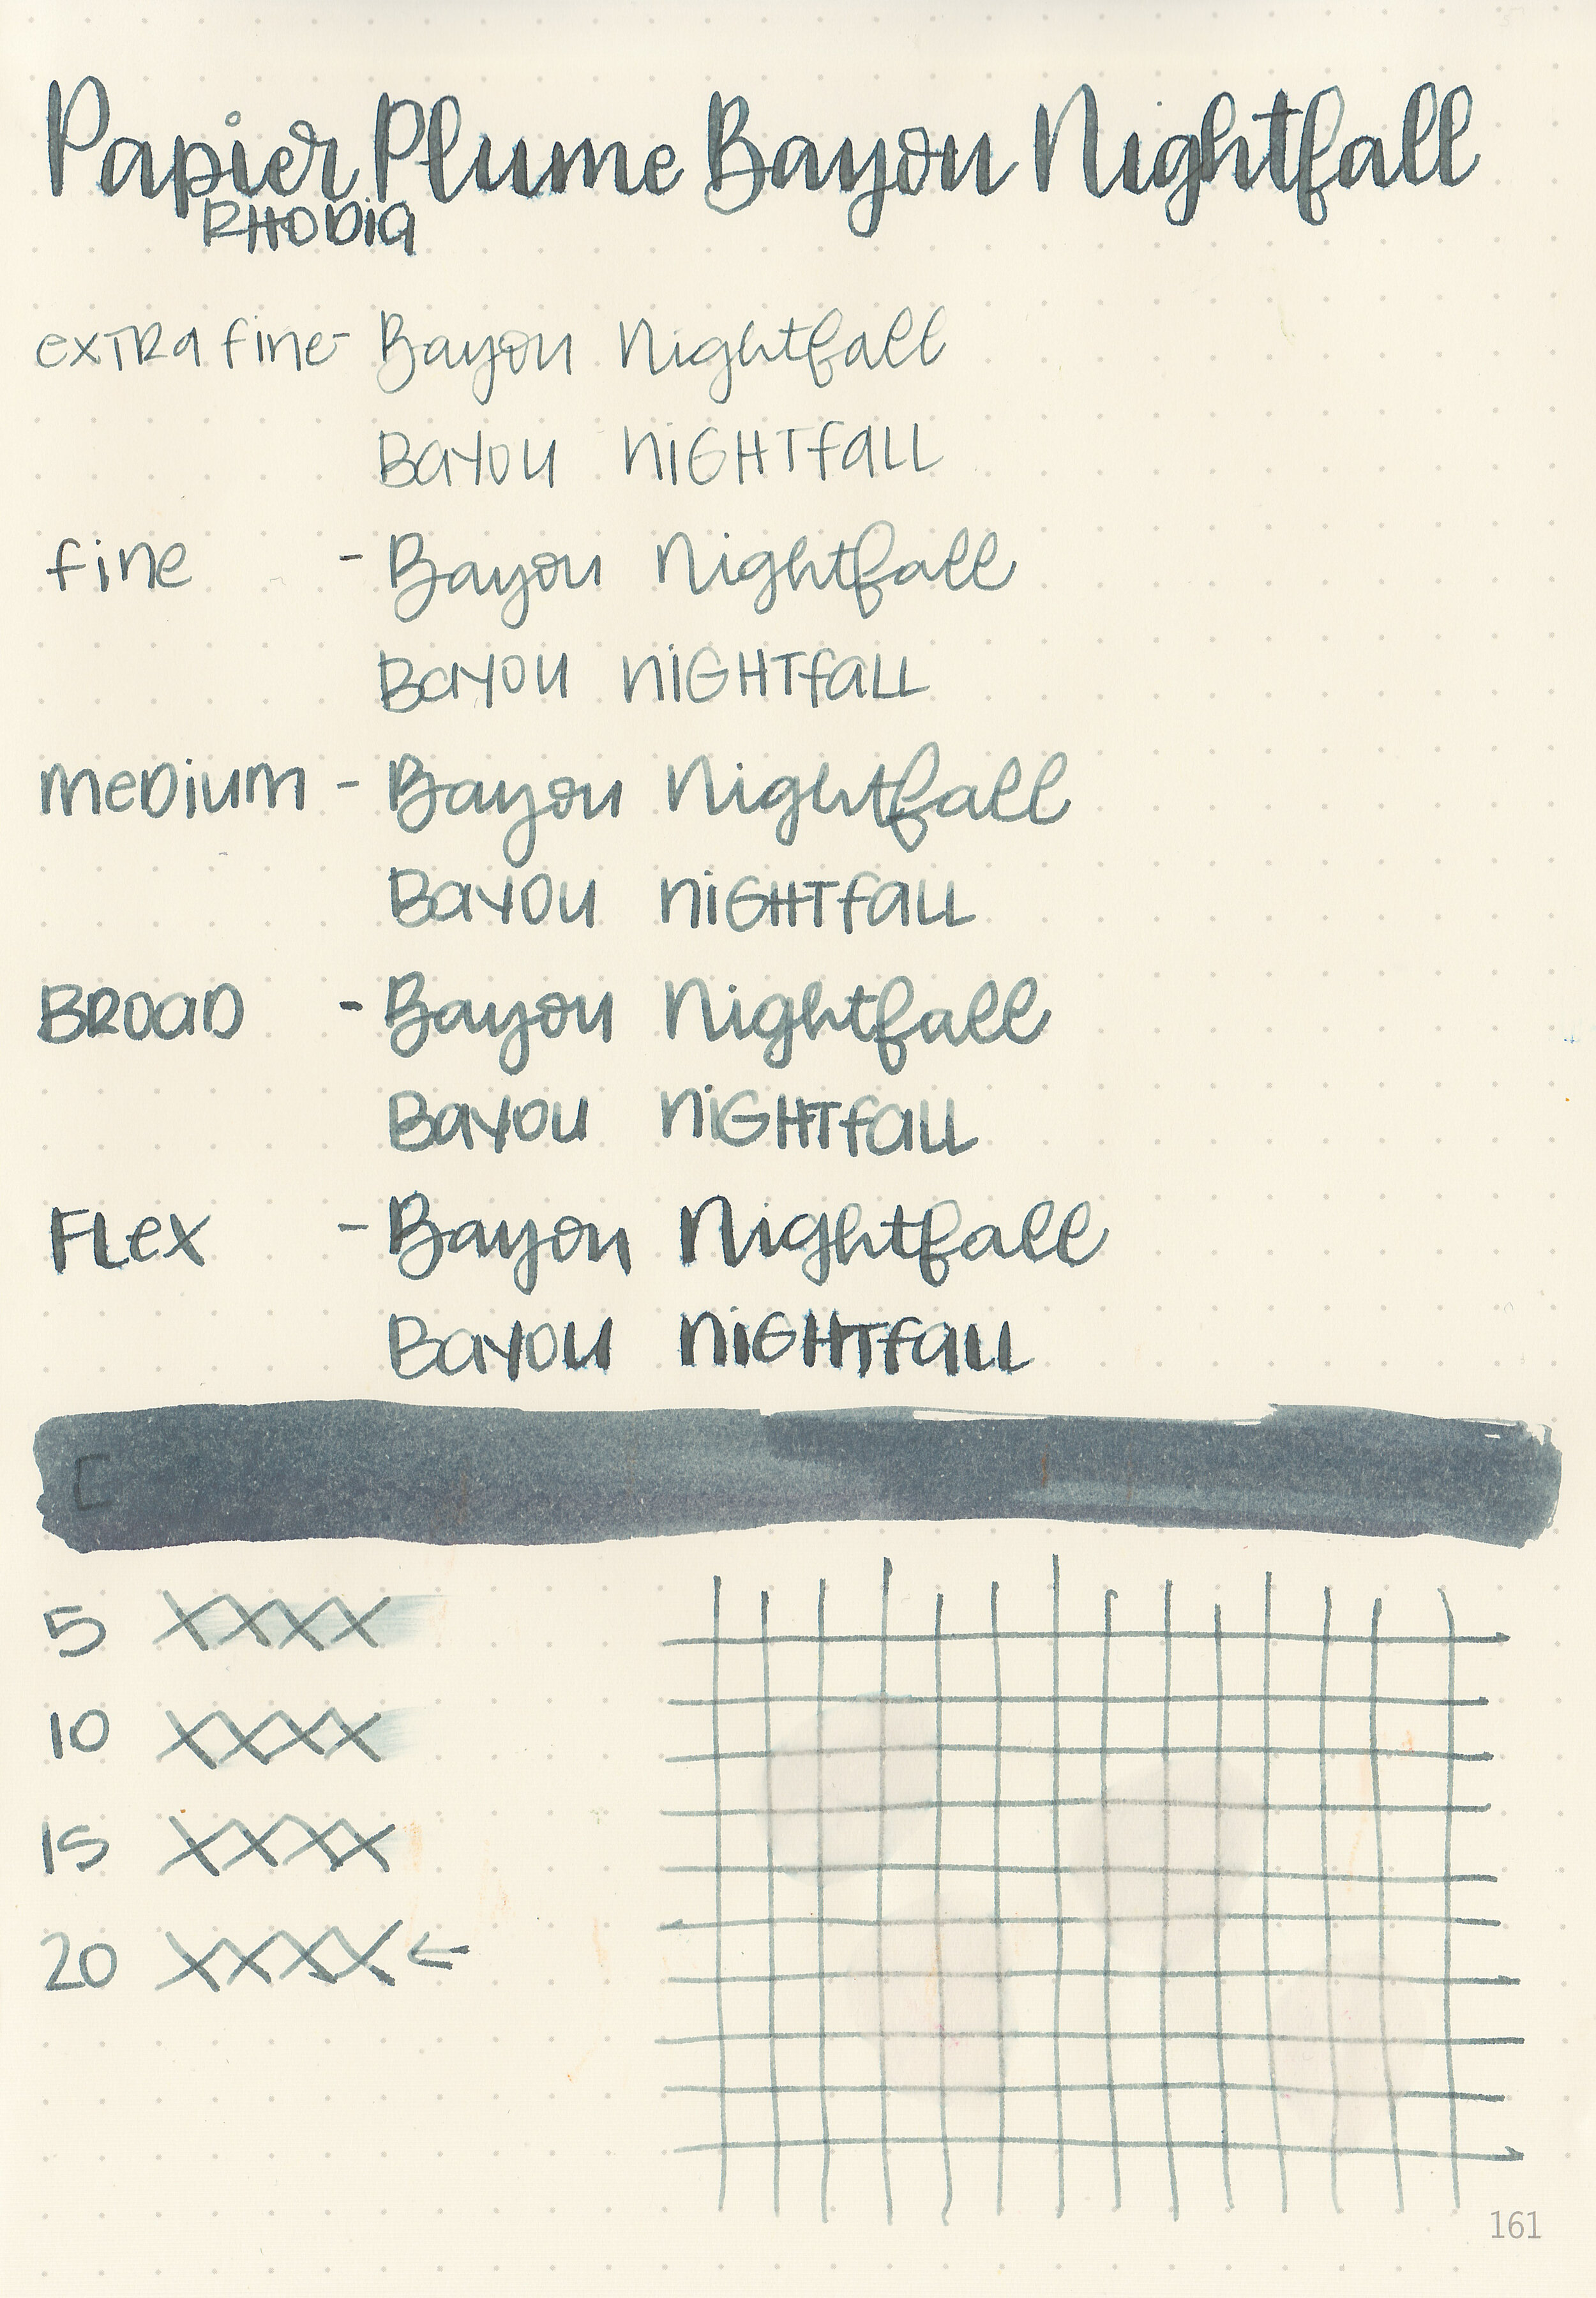 Papier Plume Bayou Nightfall
RHODIA
EXTRA fine - Bayou Nightfall
BAYOU NIGHTFALL
fine - Bayou Nightfall
BAYOU NIGHTFALL
MEDIUM - Bayou Nightfall
BAYOU NIGHTFALL
BROAD - Bayou Nightfall
BAYOU NIGHTFALL
FLEX - Bayou Nightfall
BAYOU NIGHTFALL
5 XXXX
10 XXXX
15 XXXX
20 XXXX ←
161